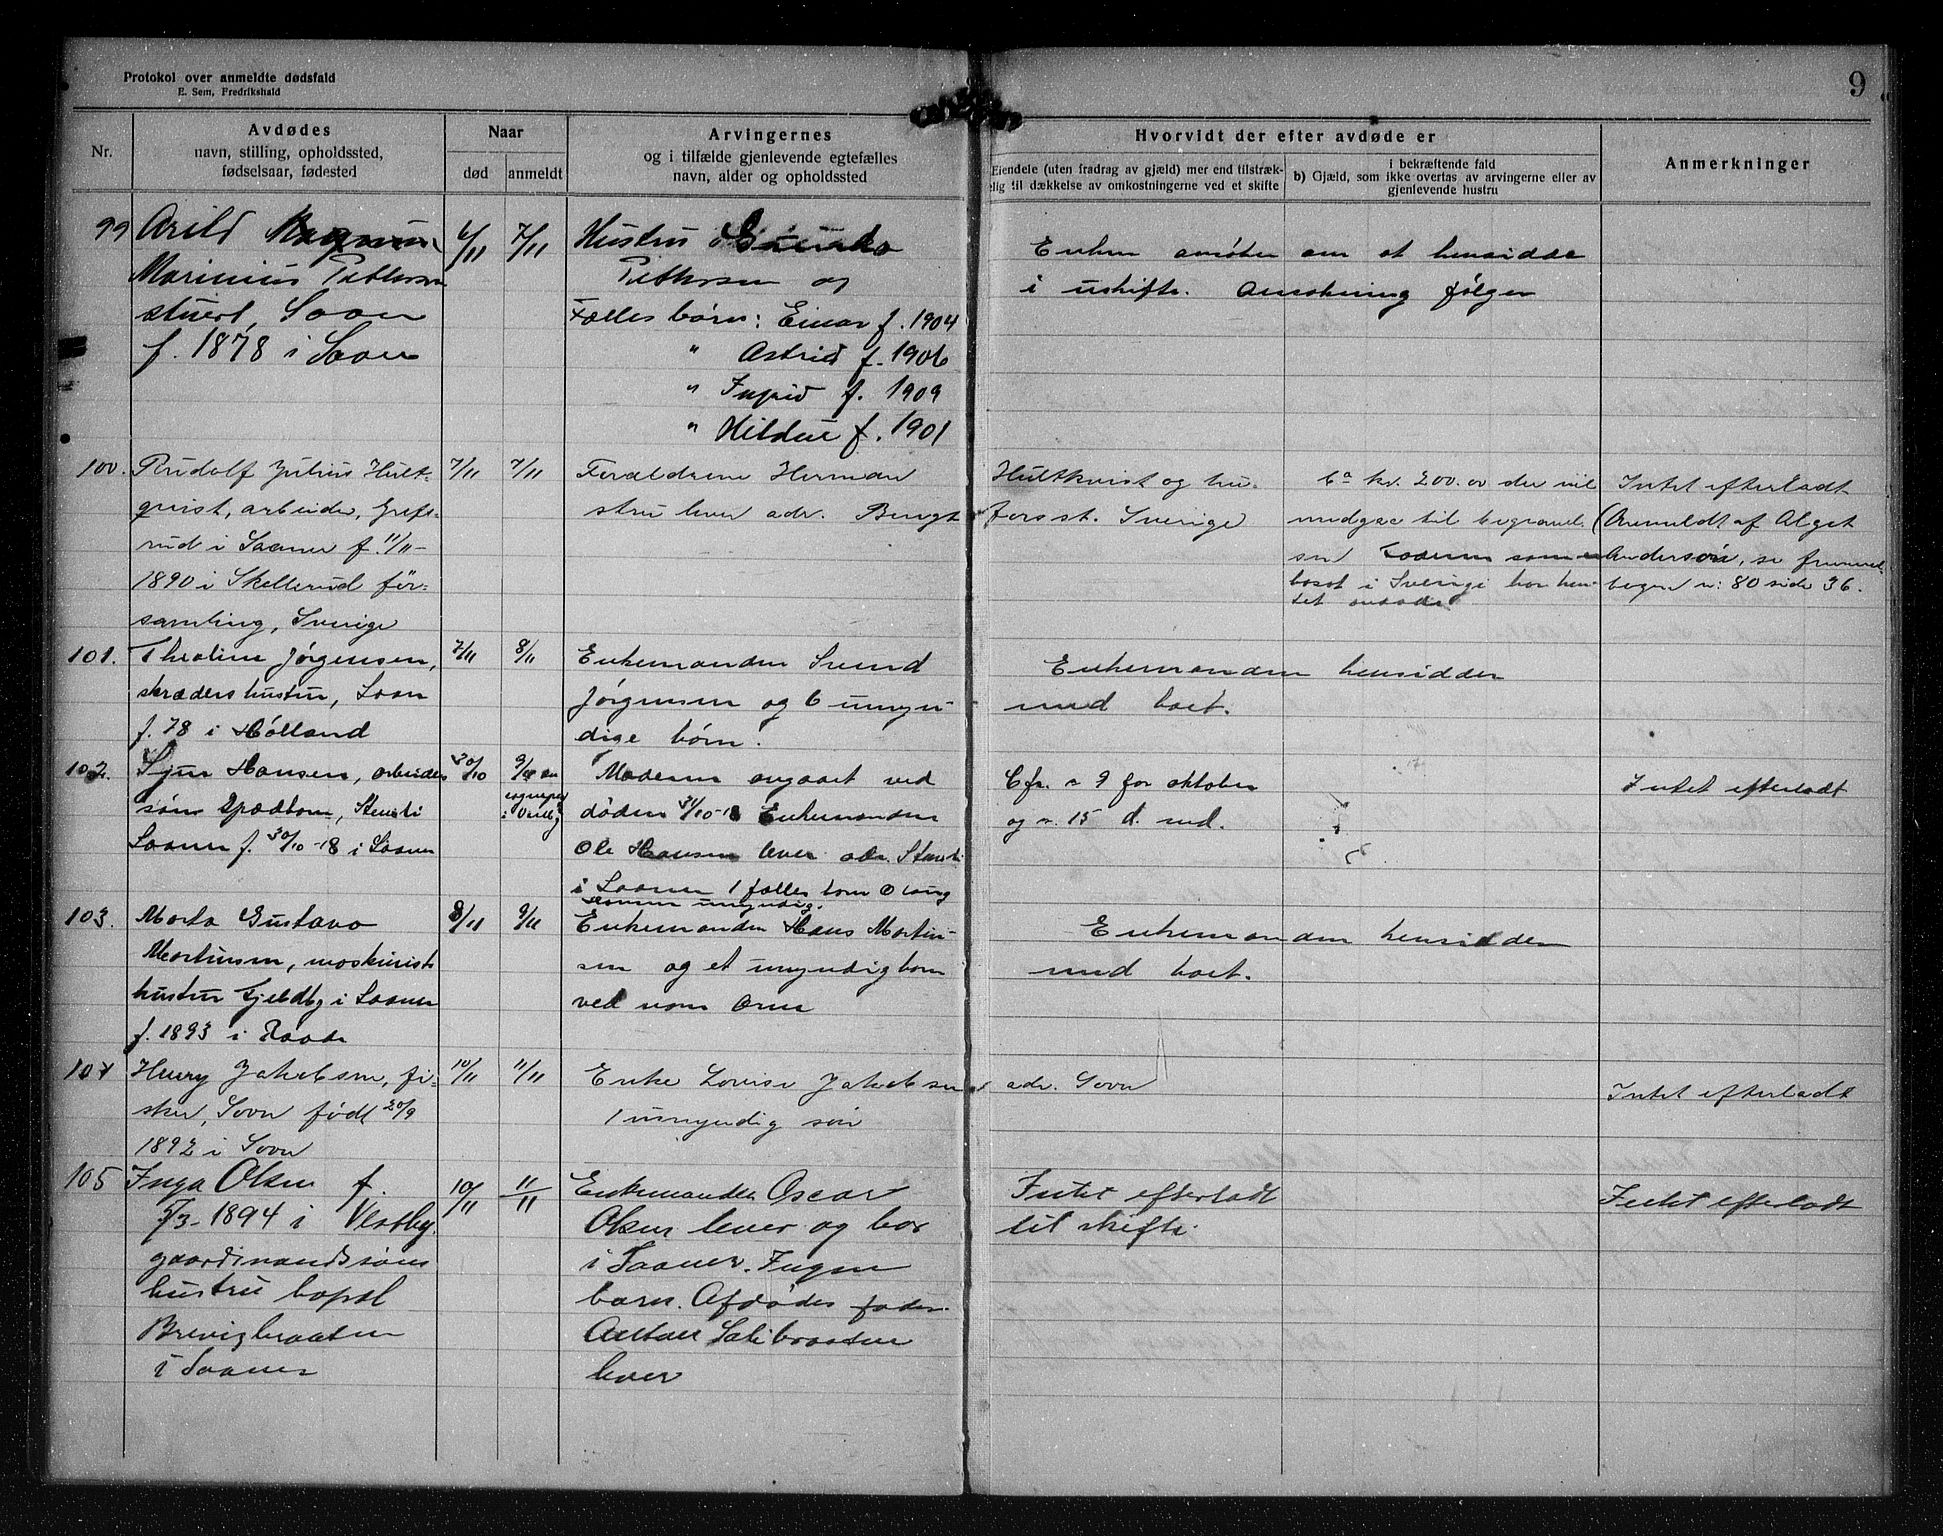 Protokol over anmeldte dødsfald
E. Sem, Fredrikshald
9
Nr.
Avdødes
navn, stilling, opholdssted,
fødselsaar, fødested
Naar
død
anmeldt
Arvingernes
og i tilfælde gjenlevende egtefælles
navn, alder og opholdssted
Hvorvidt der efter avdøde er
Eiendele (uten fradrag av gjæld) mer end tilstræk-
elig til dækkelse av omkostningerne ved et skifte
i bekræftende fald
b) Gjæld, som ikke overtas av arvingerne eller av
gjenlevende hustru
Anmerkninger
99
Arild Magnus
Marinius Pettersen
stuert, Soon
f. 1878 i Soon
6/11
7/11
Hustru
Pettersen og
Fælles børn: Einar f. 1904
" Astrid f. 1906
" Ingrid f. 1909
" Hildur f. 1901
Enken ansøker om at hensidde
i uskifte. Ansøkning følger
100.
Rudolf Julius Hult-
quist, arbeider, Grefs-
rud i Saaner f. 11/11-
1890 i Skellerud för-
samling, Sverige
7/11
7/11
Foræeldrene Herman
stru lever adr. Bengt
Hultkvist og hu-
forsst. Sverige
ca kr. 200.00 der vil
medgaa til begravel
sen Faderen som er
bosat i Sverige har hen-
tet avdøde
Intet efterladt
(Anmeldt af Algot
Anderson, se
bogen n: 80 side 36.
101.
Thealine Jørgensen,
skræders hustru, Soon
f. 78 i Høland
7/11
8/11
Enkemanden Svend
Jørgensen og 6 umyn-
dige børn.
Enkemanden hensidder
med boet.
102.
Sjur Hansen, arbeider
søn Spædbarn, Stensli
Saaner f. 30/10-18 i Saaner
30/10
9/11 av
Moderen avgaaet ved
døden 31/10-18 Enkemanden
Ole Hansen lever adr. Stensli
i Saaner 1 fælles barn
umyndig.
Cfr. n 9 for oktober
og n. 15 d. md.
Intet efterladt
103.
Marta Gustava
Martinsen, maskinists
hustru Gjeldby i Saaner
f. 1893 i Raade
8/11
9/11
Enkemanden Hans Martin-
sen og et umyndig barn
ved navn Arne
Enkemanden hensidder
med boet.
104
Henry Jakobsen, fi-
sker, Sovn født 20/9
1892 i Sovn
10/11
11/11
Enke Lovise Jakobsen
1 umyndig søn
adr. Sovn
Intet efterladt
105
Inga Olsen f.
7/3-1894 i Vestby.
gaardmandssøns
hustru bopæl
Brevigbraaten
i Saaner
10/11
11/11
Enkemanden Oscar
Olsen lever og bor
i Saaner. Ingen
barn. Afdødes fader
Anton Salibraaten
lever
Intet efterladt
til skifte
Intet efterladt